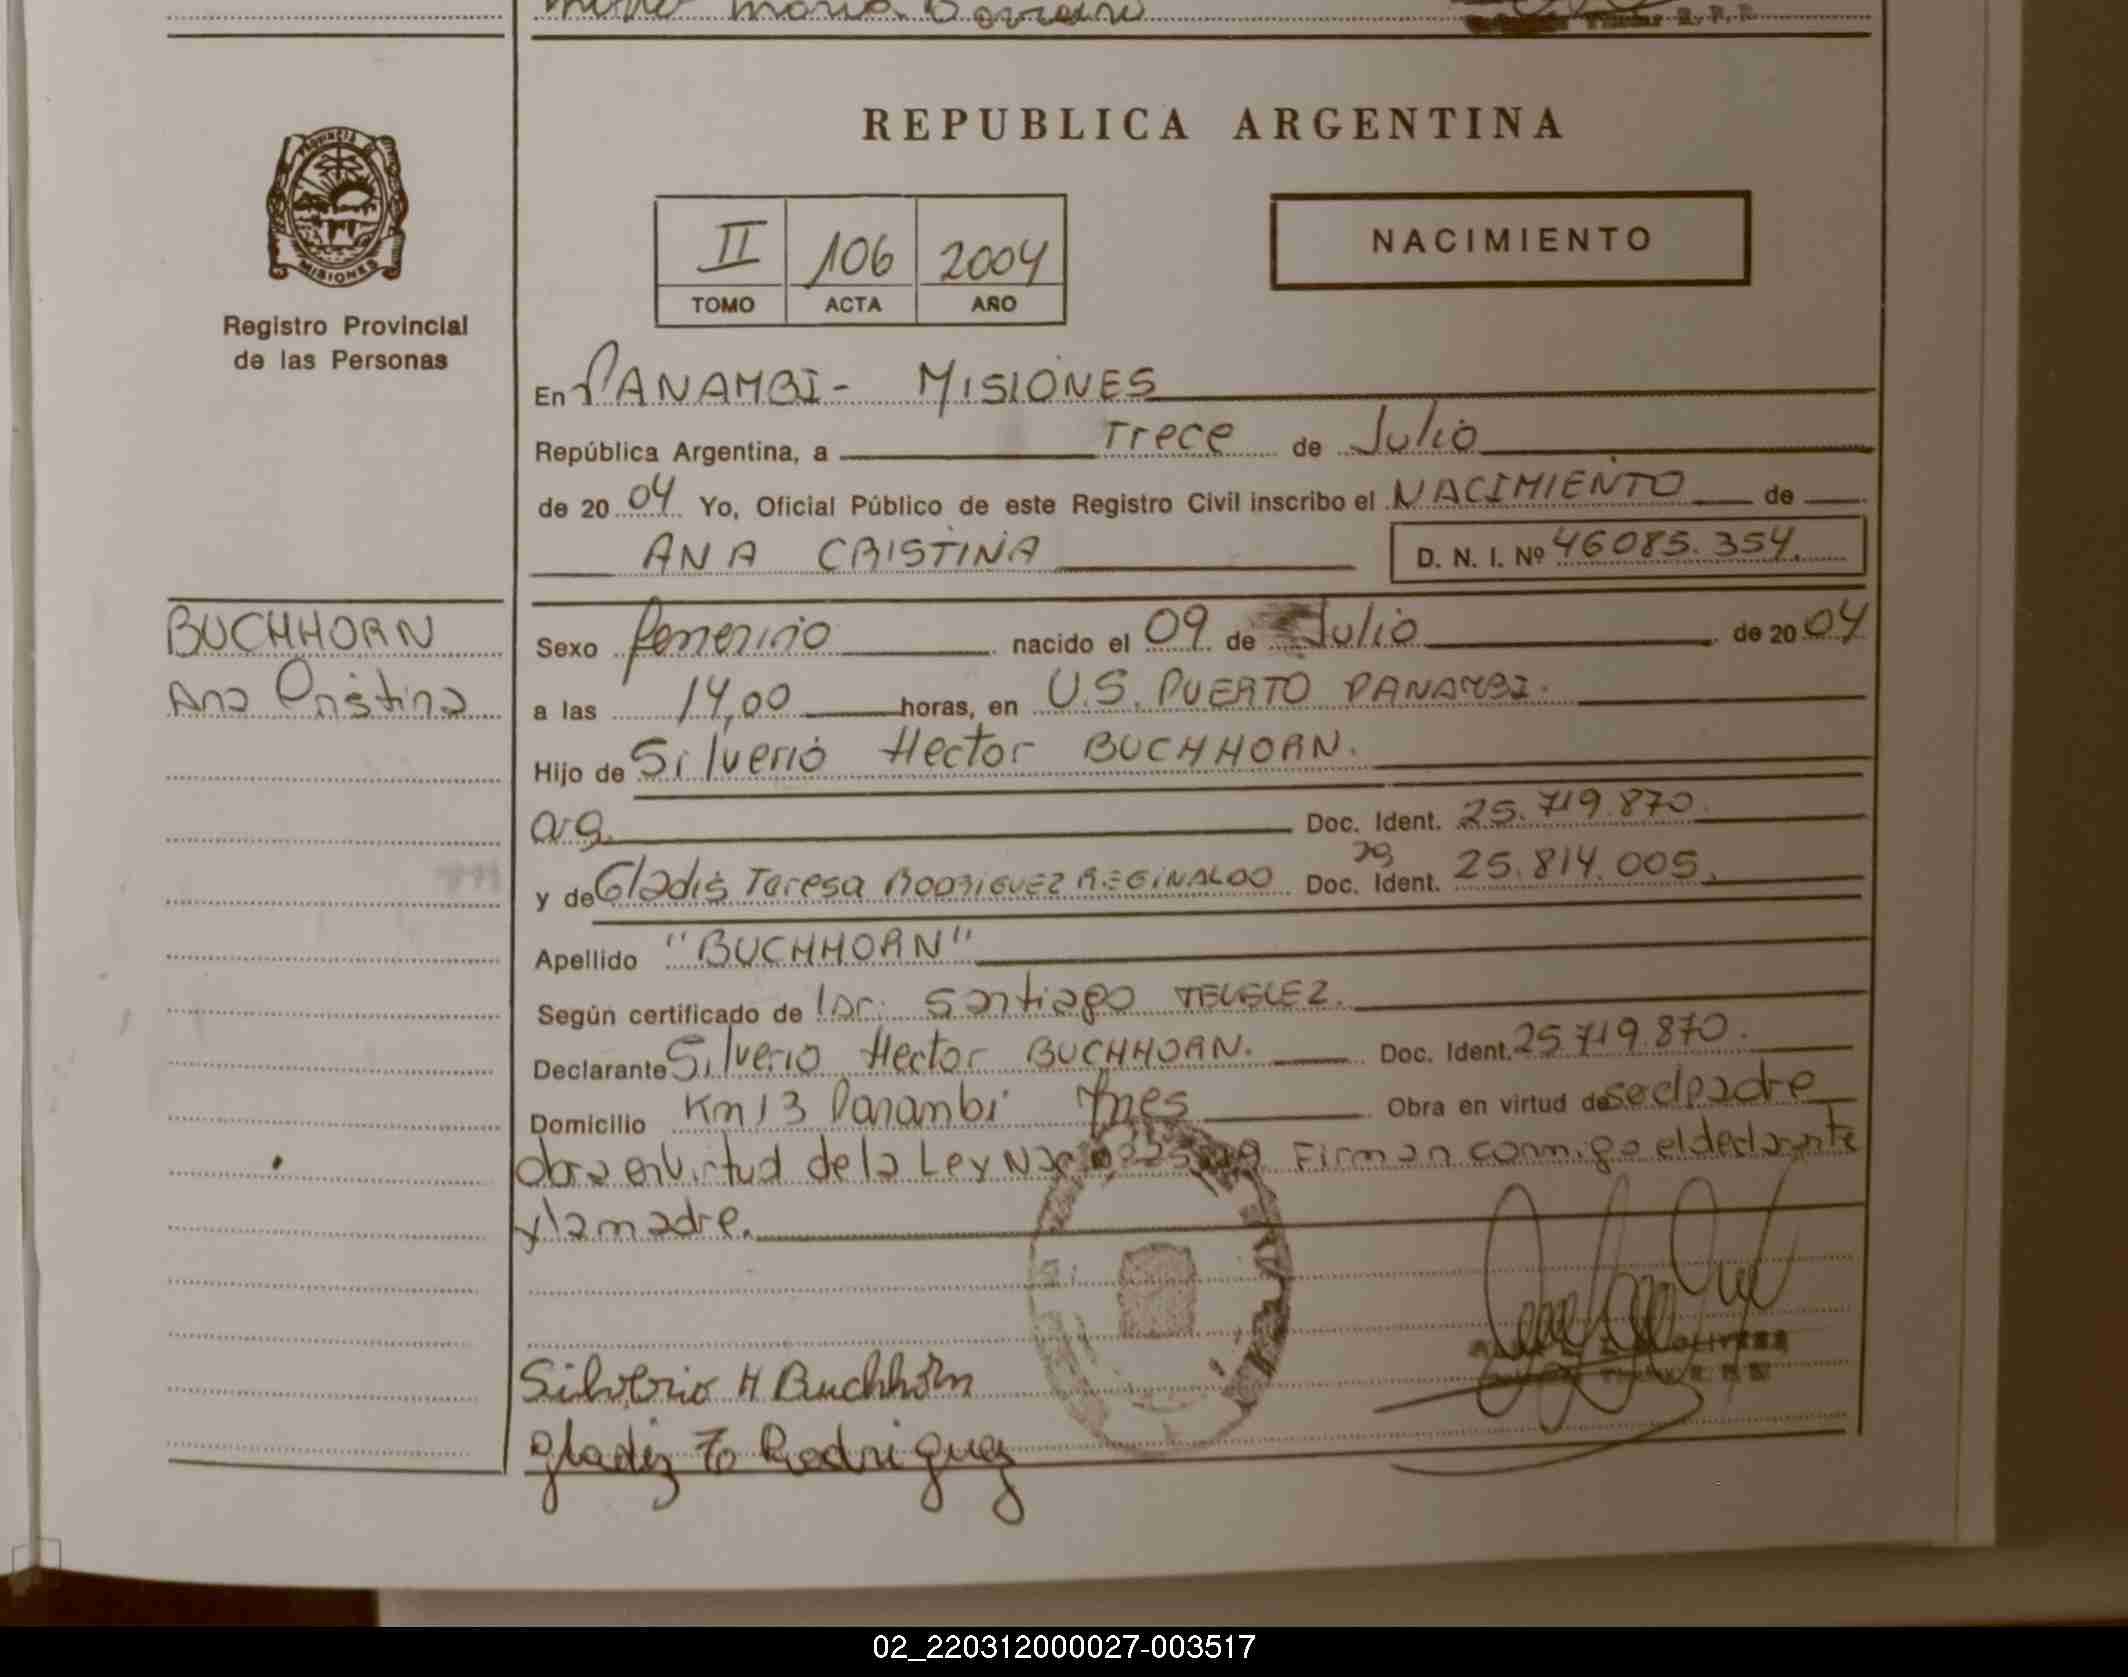 REPUBLICA ARGENTINA
PROVINCIA DE
MISIONES
Registro Provincial
de las Personas
II 106 2004
TOMO ACTA AÑO
NACIMIENTO
En PANAMBI - MISIONES
República Argentina, a Trece de Julio
de 20 04 Yo, Oficial Público de este Registro Civil inscribo el NACIMIENTO de
ANA CRISTINA D. N. I. Nº 46085.354.
BUCHHORN
Ana Cristina
Sexo femenino nacido el 09 de Julio de 20 04
a las 14,00 horas, en U.S. PUERTO PANAMBI.
Hijo de Silverio Hector BUCHHORN.
arg. Doc. Ident. 25.719.870.
y de Gladis Teresa RODRIGUEZ REGINALDO Doc. Ident. 25.814.005.
Apellido "BUCHHORN"
Según certificado de Santiago
Declarante Silverio Hector BUCHHORN. Doc. Ident. 25719.870.
Domicilio Km 13 Panambi Mnes Obra en virtud de padre
obra en virtud de la Ley Firman conmigo el declarante
y la madre.
Silverio H Buchhorn
Gladiz Rodriguez
02_220312000027-003517